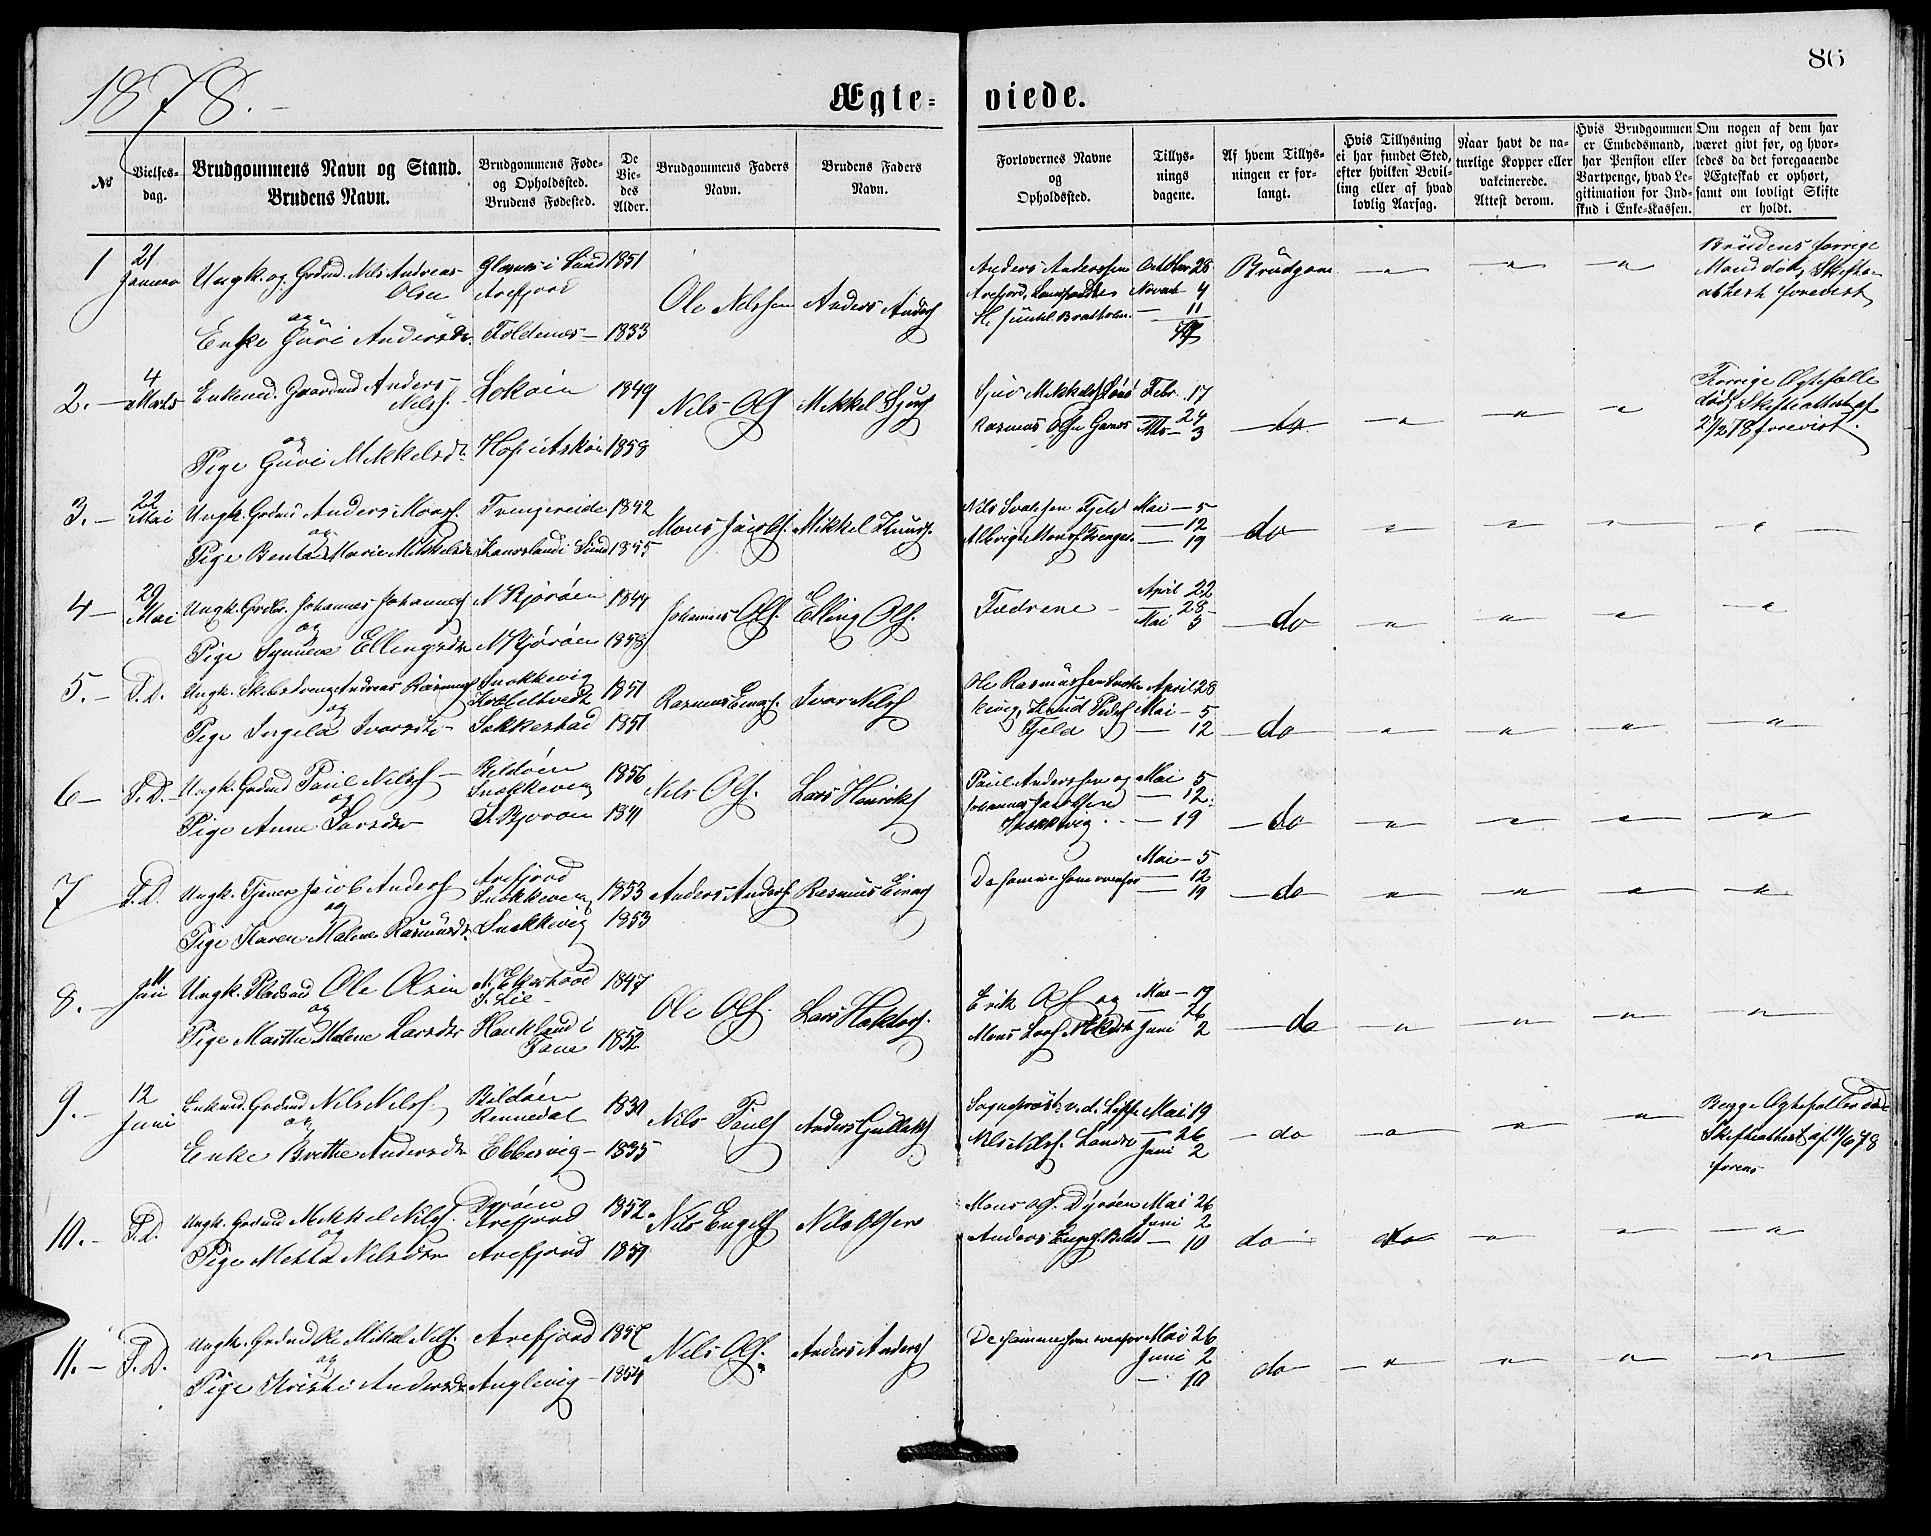 1878.
86
Ægte-
viede.
No
Vielses-
dag.
Brudgommens Navn og Stand.
Brudens Navn.
Brudgommens Føde-
og Opholdssted.
Brudens Fødested.
De
Vie-
des
Alder.
Brudgommens Faders
Navn.
Brudens Faders
Navn.
Forlovernes Navne
og
Opholdssted.
Tillys-
nings
dagene.
Af hvem Tillys-
ningen er for-
langt.
Hvis Tillysning
ei har fundet Sted,
efter hvilken Bevil-
ling eller af hvad
lovlig Aarsag.
Naar havt de na-
turlige Kopper eller
vakcinerede.
Attest derom.
Hvis Brudgommen
er Embedsmand,
har Pension eller
Vartpenge, hvad Le-
gitimation for Ind-
skud i Enke-Kassen.
Om nogen af dem har
været givt før, og hvor-
ledes da det foregaaende
Ægteskab er ophørt,
samt om lovligt Skifte
er holdt.
1
21
Januar
Ungk. og Grdmd. Nils Andreas
Olsen
og
Enke Guri Andersdr.
Glesnes i Sund
Arefjord
Toldnes
1851
1833
Ole Nilssen
Anders Anders
Anders Anderssen
Arefjord,
October 28
Novbr 4
— 11
Brudgom
Brudens forrige
Mand død, Skifte
attest forevist
2.
4
Marts
Enkemd. Gaardmd Anders
Nilss.
og
Pige Guri Mikkelsd.
Lokøen
Hop i Askøen
1849
1858
Nils Ols
Mikkel Sjurs
Febr. 17
24
Mts 3
do
Forrige Ægtefælle
død, Skifteattest af
forevist.
3.
22
Mai
Ungk. Grdmd Anders Monss.
og
Pige Benta Marie Mikkelsdr
Trengereide
i Sund
1852
1855
Mons Jacobs.
Mikkel Knuds.
Fjeld
Mai 5
12
19
do
4
29
Mai
Ungk. Grdbr. Johannes Johannes
og
Pige Synneve Ellingsdr
N Bjorøen
N Bjorøen
1844
1858
Johannes Ols.
Elling Ols.
Fædrene
April 22
28
Mai 5
do
5.
S. D.
Ungk. Skibsdreng Andreas Rasmus
og
Pige Ingela Ivarsdr
Snekkevig
Sekkestad
1851
1851
Rasmus Einars.
Ivar Nils
Ole Rasmussen Snek
kevig, Knud Peders
Fjeld
April 28
Mai 5
12
do
6
S. D.
Ungk. Grdmd Paul Nils
og
Pige Anne Larsdr
Bildøen
Snekkevig
S Bjorøen
1856
1841
Nils Ols.
Lars Henriks
Paul Anderssen og
Johannes Jacobssen
Snekkevig
Mai 5
12
19
do
7
S. D.
Ungk. Tjener Jacob Anders
og
Pige Karen Malene Rasmusdr
Arefjord
Snekkevig
Snekkevig
1853
1853
Anders Anders
Rasmus Einars
De samme som ovenfor
Mai 5
12
19
do
8.
11
Juni
Ungk. Pladsmd Ole Olsen
og
Pige Marthe Malene Larsdr
S. Lie
Haukland i
Fane
1847
1852
Ole Ols.
Lars Haldors.
Erik Ols og
Mons Lars
Mai 19
26
Juni 2
do
9.
12
Juni
Enkemd. Grdmd Nils Nils.
og
Enke Brethe Andersdr
Bildøen
Rennedal
Ebbesvig
1830
1835
Nils Pauls
Anders Gullaks
Nils Nils.
Mai 19
26
Juni 2
do
Begge Ægtefæller død
Skifteattest af 11/6 78
forevis
10.
S. D.
Ungk. Grdmd Mikkel Nils.
og
Pige Metta Nilsdr
Dyrøen
Arefjord
Arefjord
1852
1859
Nils Engels
Nils Olsen
Mons Ols. Dyrøen
Anders Engels. Bild
Mai 26
Juni 2
10
do
do
11.
S. D.
Ungk. Grdmd Ole Mikal Nils.
og
Pige Kristi Andersdr
Arefjord
Anglevig
1857
1854
Nils Ols.
Anders Anders
De samme som ovenfor
Mai 26
Juni 2
10
do